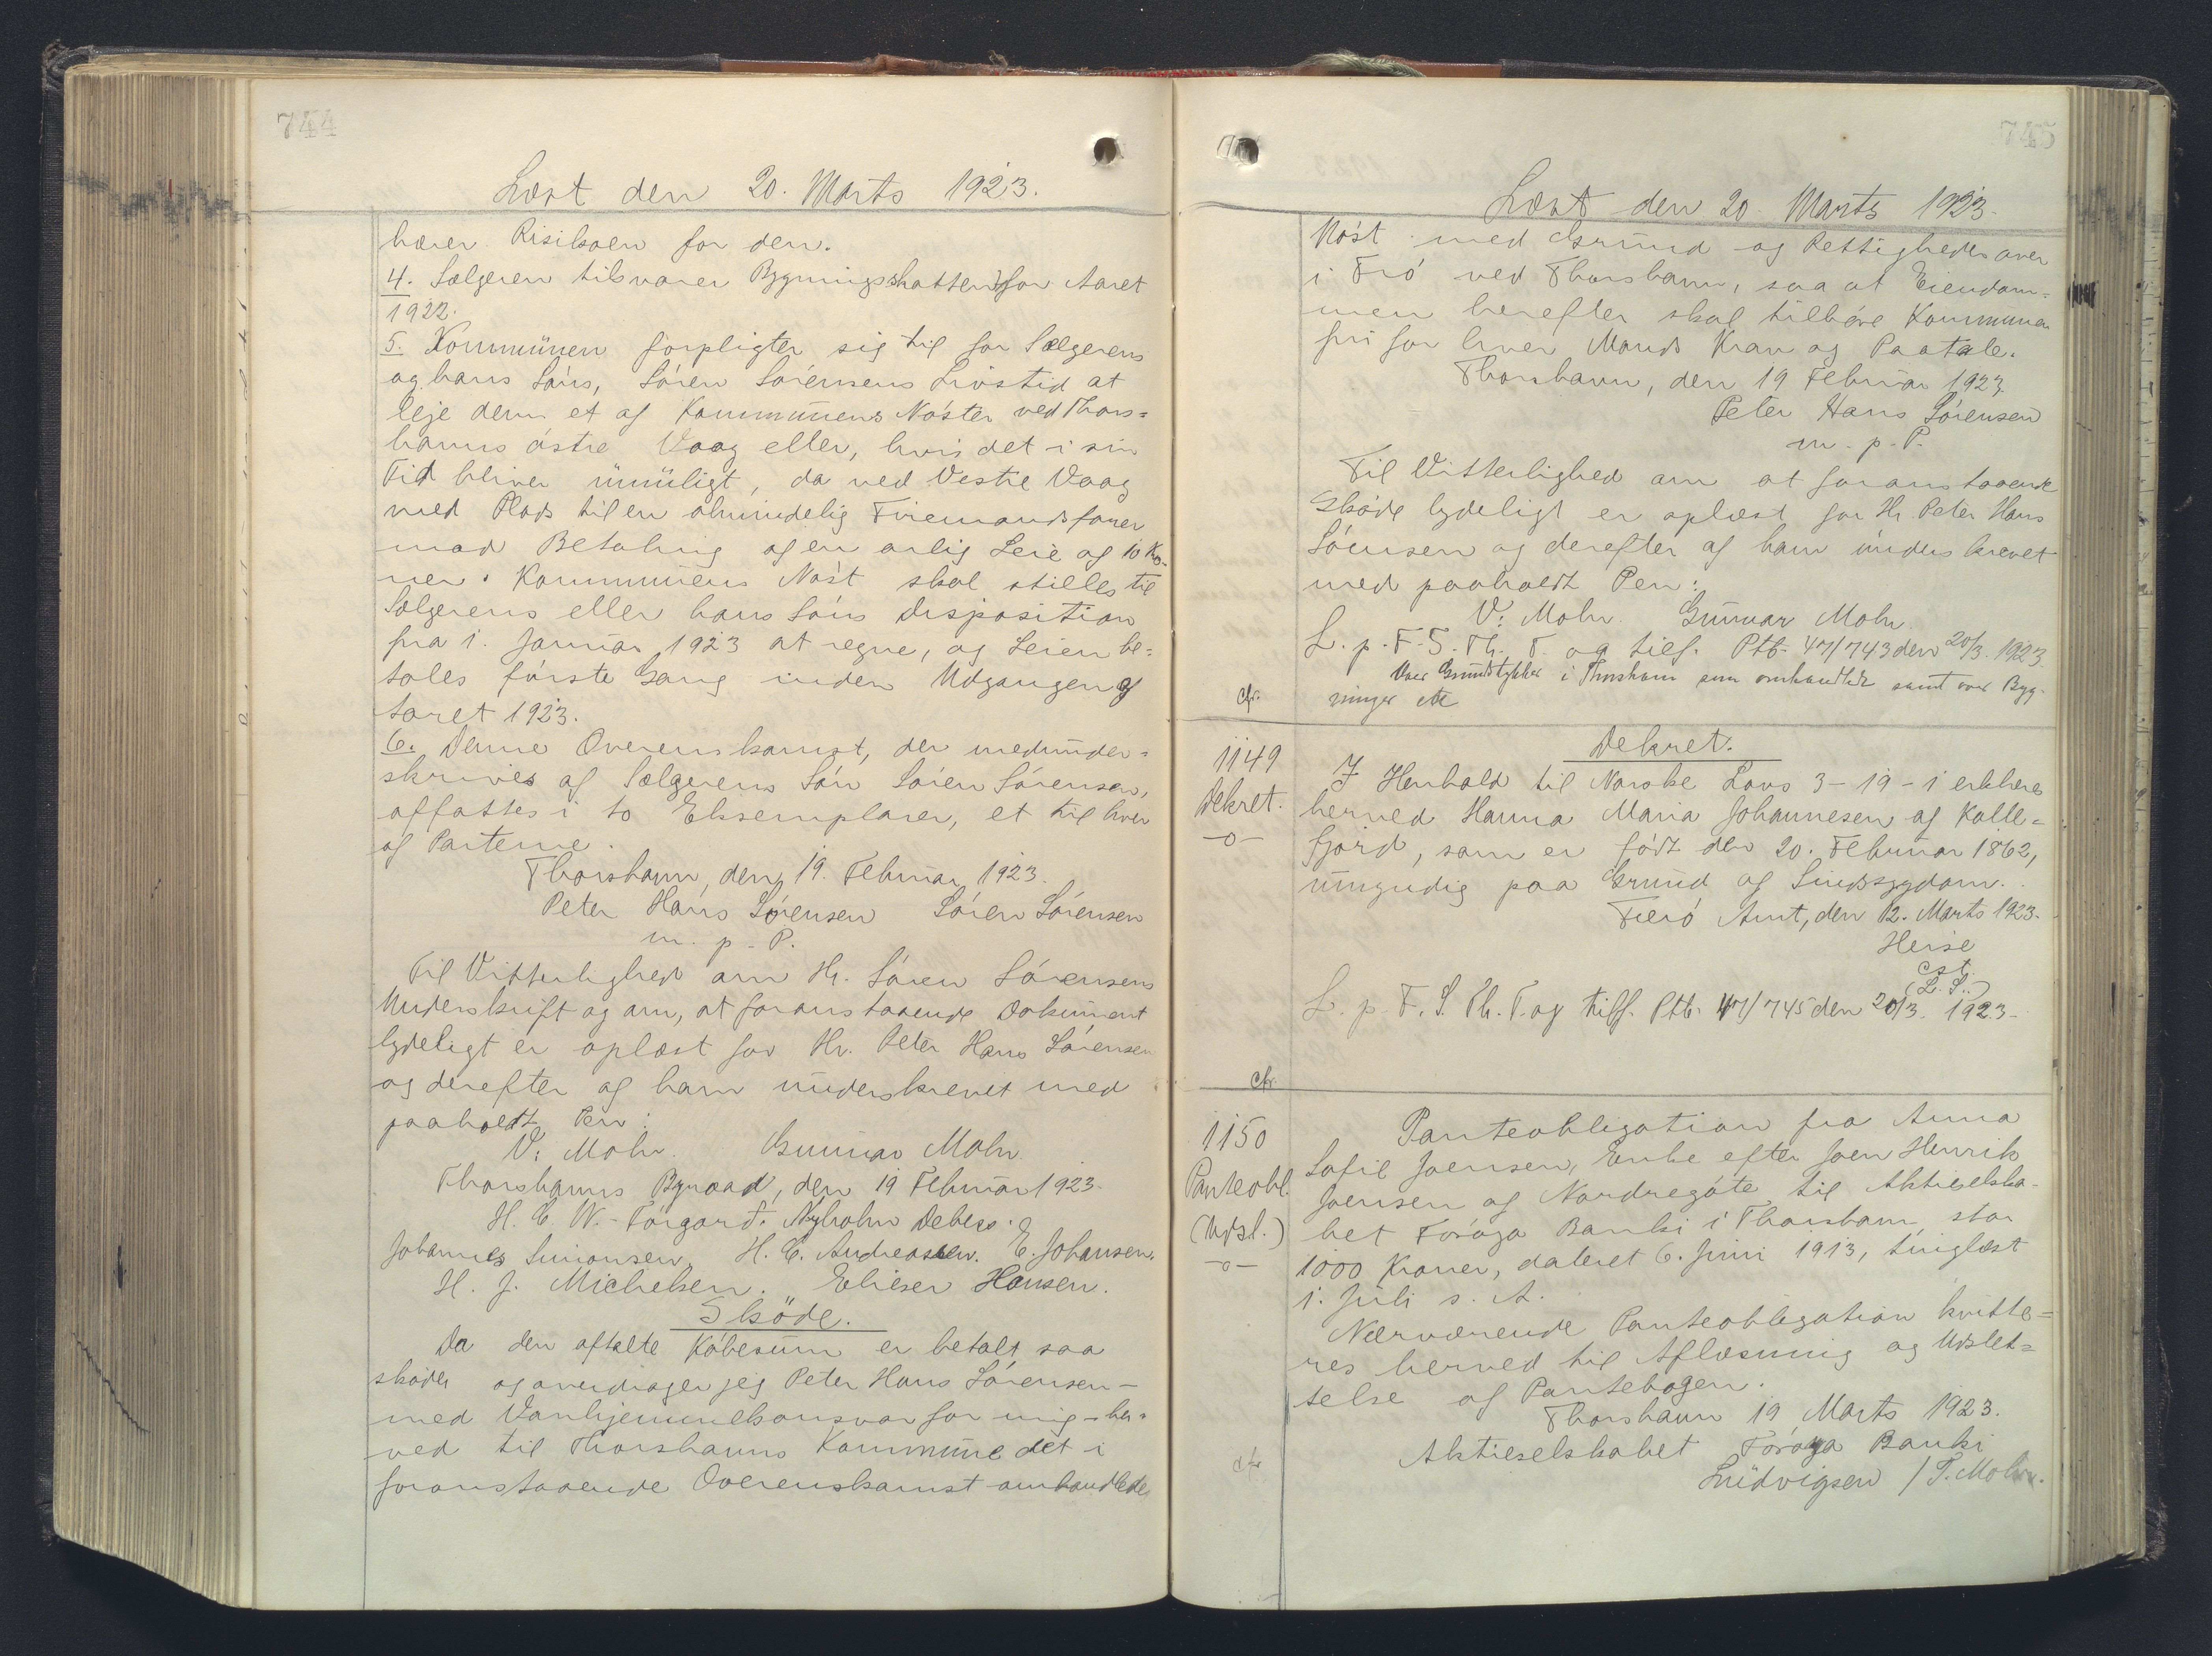 744
Læst den 20. Marts 1923.
bærer Risikoen for den.
4. Sælgeren tilsvarer Bygningsskatten for Aaret
1922.
5. Kommunen forpligter sig til for Sælgerens
og hans Søns, Søren Sørensens Livstid at
leje dem et af Kommunens Nøster ved Thors=
havns østre Vaag eller, hvis det i sin
Tid bliver umuligt, da ved Vestre Vaag
med Plads til en almindelig Firemandsfarer
mod Betaling af en aarlig Leie af 10 Kro-
ner. Kommunens Nøst skal stilles til
Sælgerens eller hans Søns Disposition
fra 1. Januar 1923 at regne, og Leien be=
tales første Gang inden Udgangen af
Aaret 1923.
6. Denne Overenskomst, der medunder=
skrives af Sælgerens Søn Søren Sørensen,
affattes i to Eksemplarer, et til hver
af Parterne.
Thorshavn, den 19. Februar 1923.
Peter Hans Sørensen Søren Sørensen
m. p. P.
Til Vitterlighed om Hr. Søren Sørensens
Underskrift og om, at foranstaaende Dokument
lydeligt er oplæst for Hr. Peter Hans Sørensen
og derefter af ham underskrevet med
paaholdt Pen:
V. Mohr. Gunnar Mohr.
Thorshavns Byraad, den 19 Februar 1923.
H. C. W. Tórgarð. Nyholm Debess.
Johannes Simonsen. H. C. Andreassen. E. Johansen.
H. J. Michelsen. Elieser Hansen.
Sköde.
Da den aftalte Købesum er betalt saa
skøder og overdrager jeg Peter Hans Sørensen –
med Vanhjemmelsansvar for mig – her=
ved til Thorshavns Kommune det i
foranstaaende Overenskomst omhandlede
745
Læst den 20. Marts 1923.
Nøst med Grund og Rettigheder over
i Fró ved Thorshavn, saa at Eiendom=
men herefter skal tilhøre Kommunen
fri for hver Mands Krav og Paatale.
Thorshavn, den 19 Februar 1923
Peter Hans Sørensen
m. p. P.
Til Vitterlighed om at foranstaaende
Skøde lydeligt er oplæst for Hr. Peter Hans
Sørensen og derefter af ham underskrevet
med paaholdt Pen:
V. Mohr. Gunnar Mohr.
L. p. F. S. Th. T. og tilf. Ptb. 47/743 den 20/3. 1923.
Over Grundstykker i Thorshavn som omhandlede samt over Byg-
cfr. ninger etc
1149 Dekret.
Dekret. I Henhold til Norske Lovs 3-19-1 erklæres
–o– herved Hanna Maria Johannesen af Kolle=
fjord, som er født den 20. Februar 1862,
umyndig paa Grund af Sindssygdom.
Færö Amt, den 12. Marts 1923.
Heise
cst.
(L. S.)
L. p. F. S. Th. T. og tilf. Ptb. 47/745 den 20/3. 1923.
cfr.
1150 Panteobligation fra Anna
Panteobl. Sofie Joensen, Enke efter Joen Henrik
Joensen af Nordregøte til Aktieselska-
(Udsl.) bet Føroya Banki i Thorshavn, stor
–o– 1000 Kroner, dateret 6. Juni 1913, tinglæst
1. Juli s. A.
Nærværende Panteobligation kvitte=
res herved til Aflæsning og Udslet=
telse af Pantebogen.
Thorshavn 19 Marts 1923.
cfr Aktieselskabet Føroya Banki
Ludvigsen / P. Mohr.